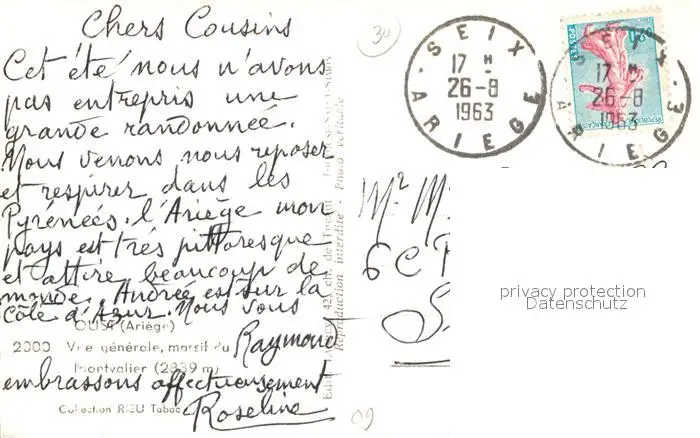 Chers Cousins
Cet été nous n'avons
pas entrepris une
grande randonnée.
Nous venons nous reposer
et respirer dans les
Pyrénées. l'Ariège mon
pays est très pittoresque
et attire beaucoup de
monde. Andrée est sur la
Côte d'Azur. Nous vous
embrassons affectueusement
Raymond
Roseline
OUST (Ariège)
2000 Vue générale, massif du
Montvalier (2839 m)
Collection RIEU Tabac
Reproduction interdite
30
SEIX
17 H
26-8
1963
ARIEGE
POSTES
REPUBLIQUE FRANÇAISE
SEIX
17 H
26-8
1963
ARIEGE
Mr M
6 C
privacy protection
Datenschutz
09